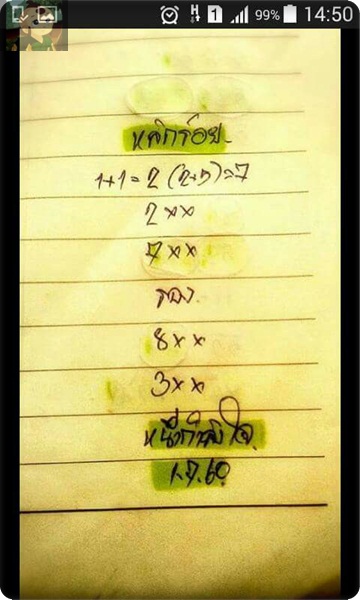 99% 14:50
หลักร้อย.
1+1=2 (2+5)=7
2xx
7xx
รอง.
8xx
3xx
หนึ่งกำลังใจ.
1.9.60.